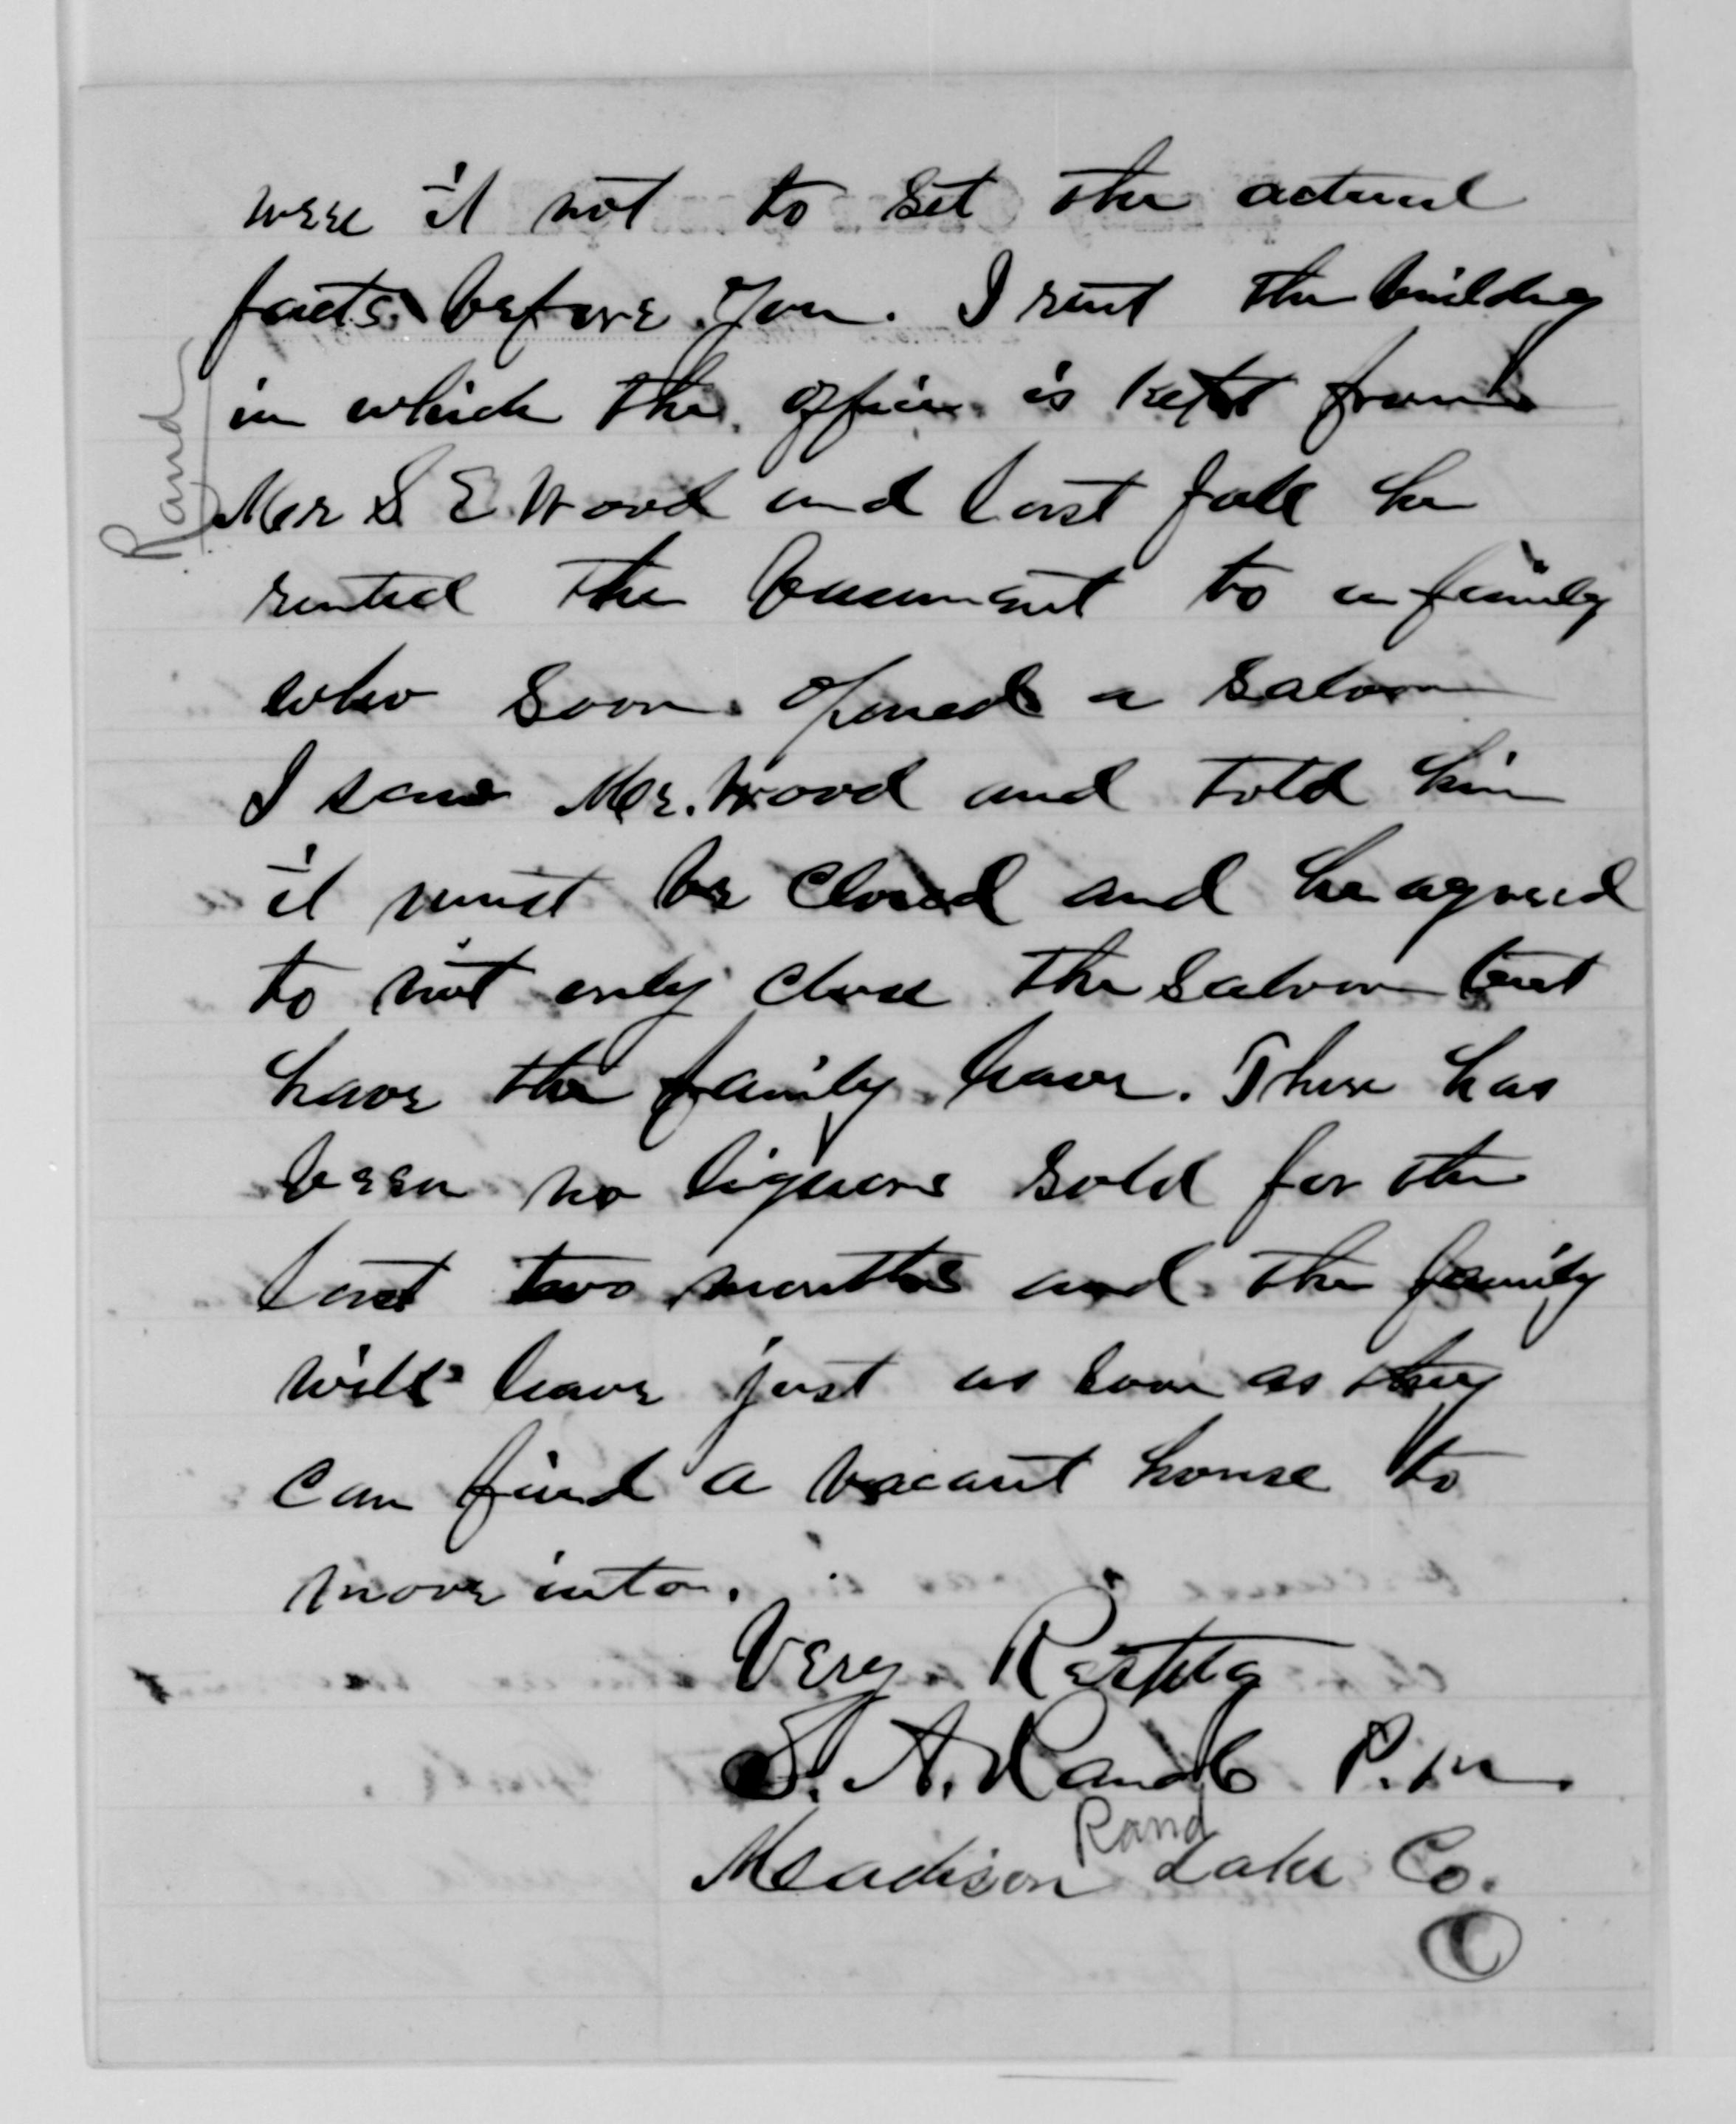 were it not to set the actual
facts before you. I rent the building
in which the office is kept from
Rand
Mr S E. Wood and last fall he
rented the basement to a family
who soon opened a saloon
I saw Mr. Wood and told him
it must be closed and he agreed
to not only close the saloon but
have the family leave. There has
been no liquors sold for the
last two months and the family
will leave just as soon as they
can find a vacant house to
move into.
Very Resptfly
S. A. Rand P.M.
Rand
Madison Lake Co.